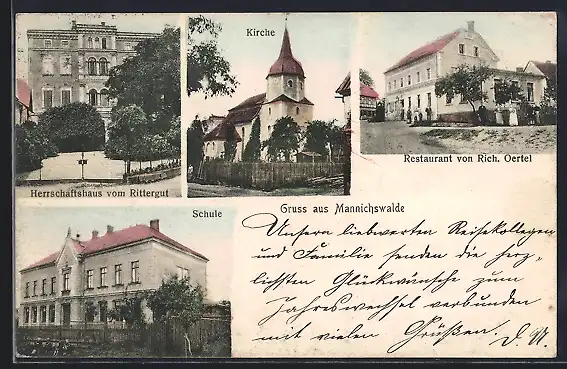 Kirche
Herrschaftshaus vom Rittergut
Restaurant von Rich. Oertel
Schule
Gruss aus Mannichswalde
Unsern liebwerten Reisekollegen
und Familie senden die herz-
lichsten Glückwünsche zum
Jahreswechsel verbunden
mit vielen Grüßen.